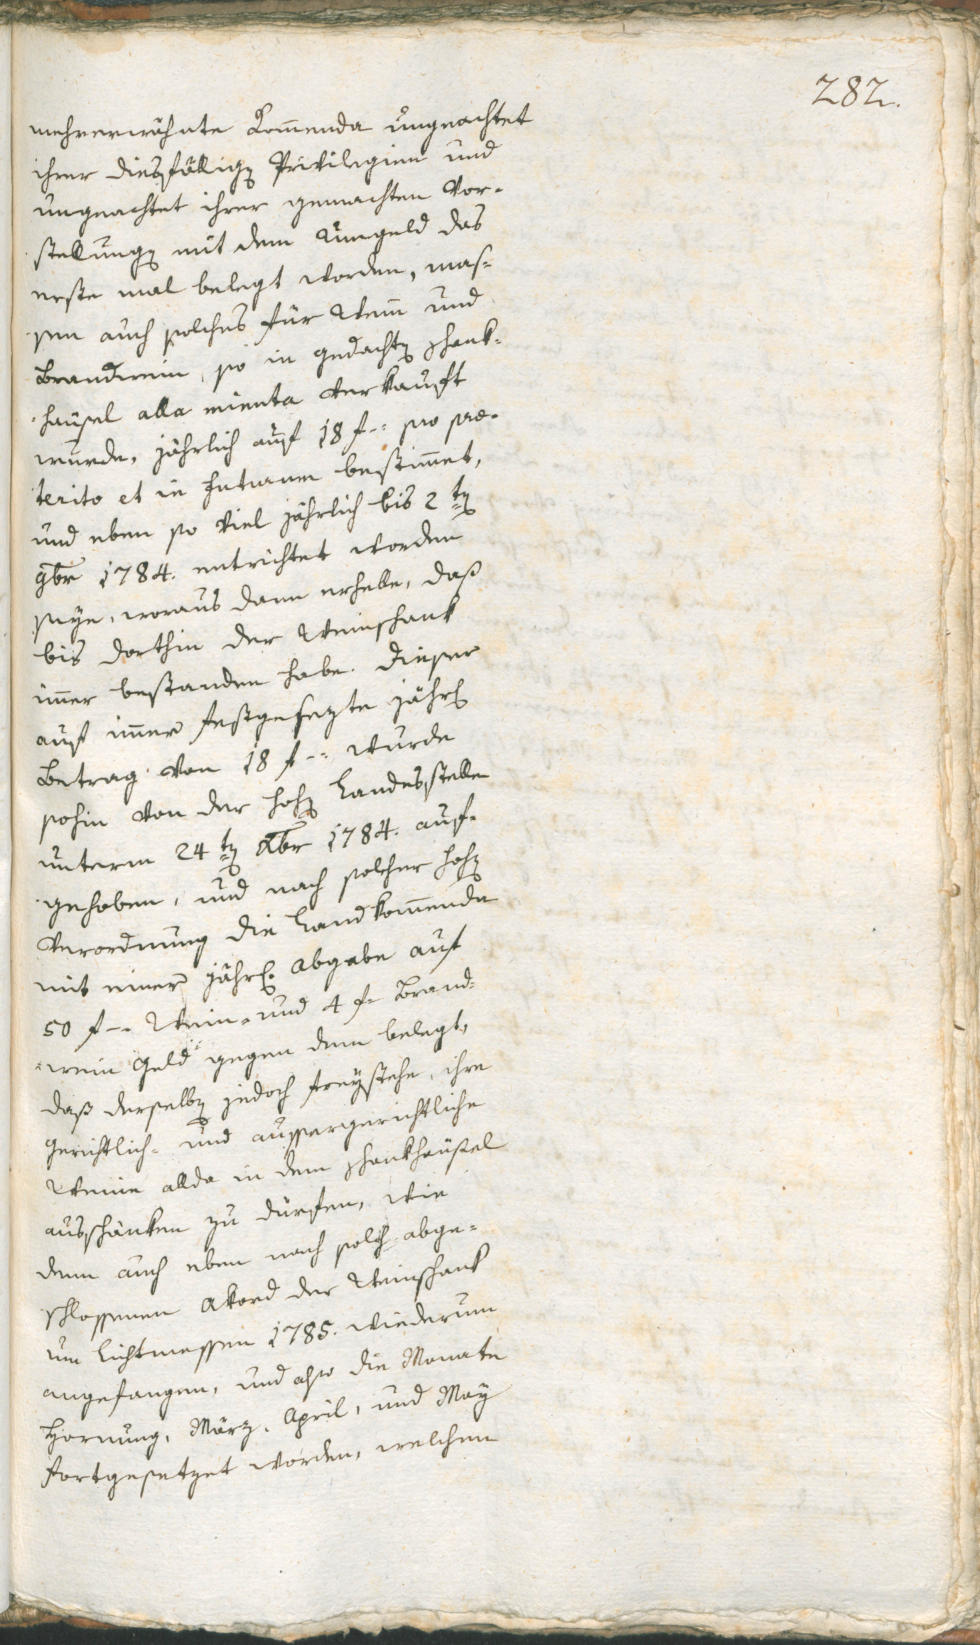 282.
mehrerwähnte Commenda ungeachtet
ihrer diesfällig Privilegien und
ungeachtet ihrer gemachten Vor-
stellung mit dem Umgeld das
erste mal belegt worden, mas-
sen auch solches für Wein und
Brandwein, so in gedacht Schank-
häusel alla minuta verkauft
wurde, jährlich auf 18 f -: pro præ-
terito et in futurum bestimet,
und eben so viel jährlich bis 2t
9br 1784. entrichtet worden
seye, woraus dann erhelle, daß
bis dorthin der Weinschank
imer bestanden habe. Dieser
auf imer festgesezte jährl
Betrag von 18 f -: wurde
sohin von der hoh Landesstelle
unterm 24t Xbr 1784. auf-
gehoben, und nach solcher hoh
Verordnung die Landkomenda
mit einer jährl. Abgabe auf
50 f -. Wein- und 4 f - Brand-
wein Geld gegen dem belegt,
daß derselb jedoch freystehe, ihre
Gerichtlich- und aussergerichtliche
Weine allda in dem Schankhäusel
ausschänken zu dürfen, wie
denn auch eben nach solch abge-
schlossenen Akord der Weinschank
um Lichtmessen 1785. wiederum
angefangen, und also die Monate
Hornung, März, April, und May
fortgesetzet worden, welchem